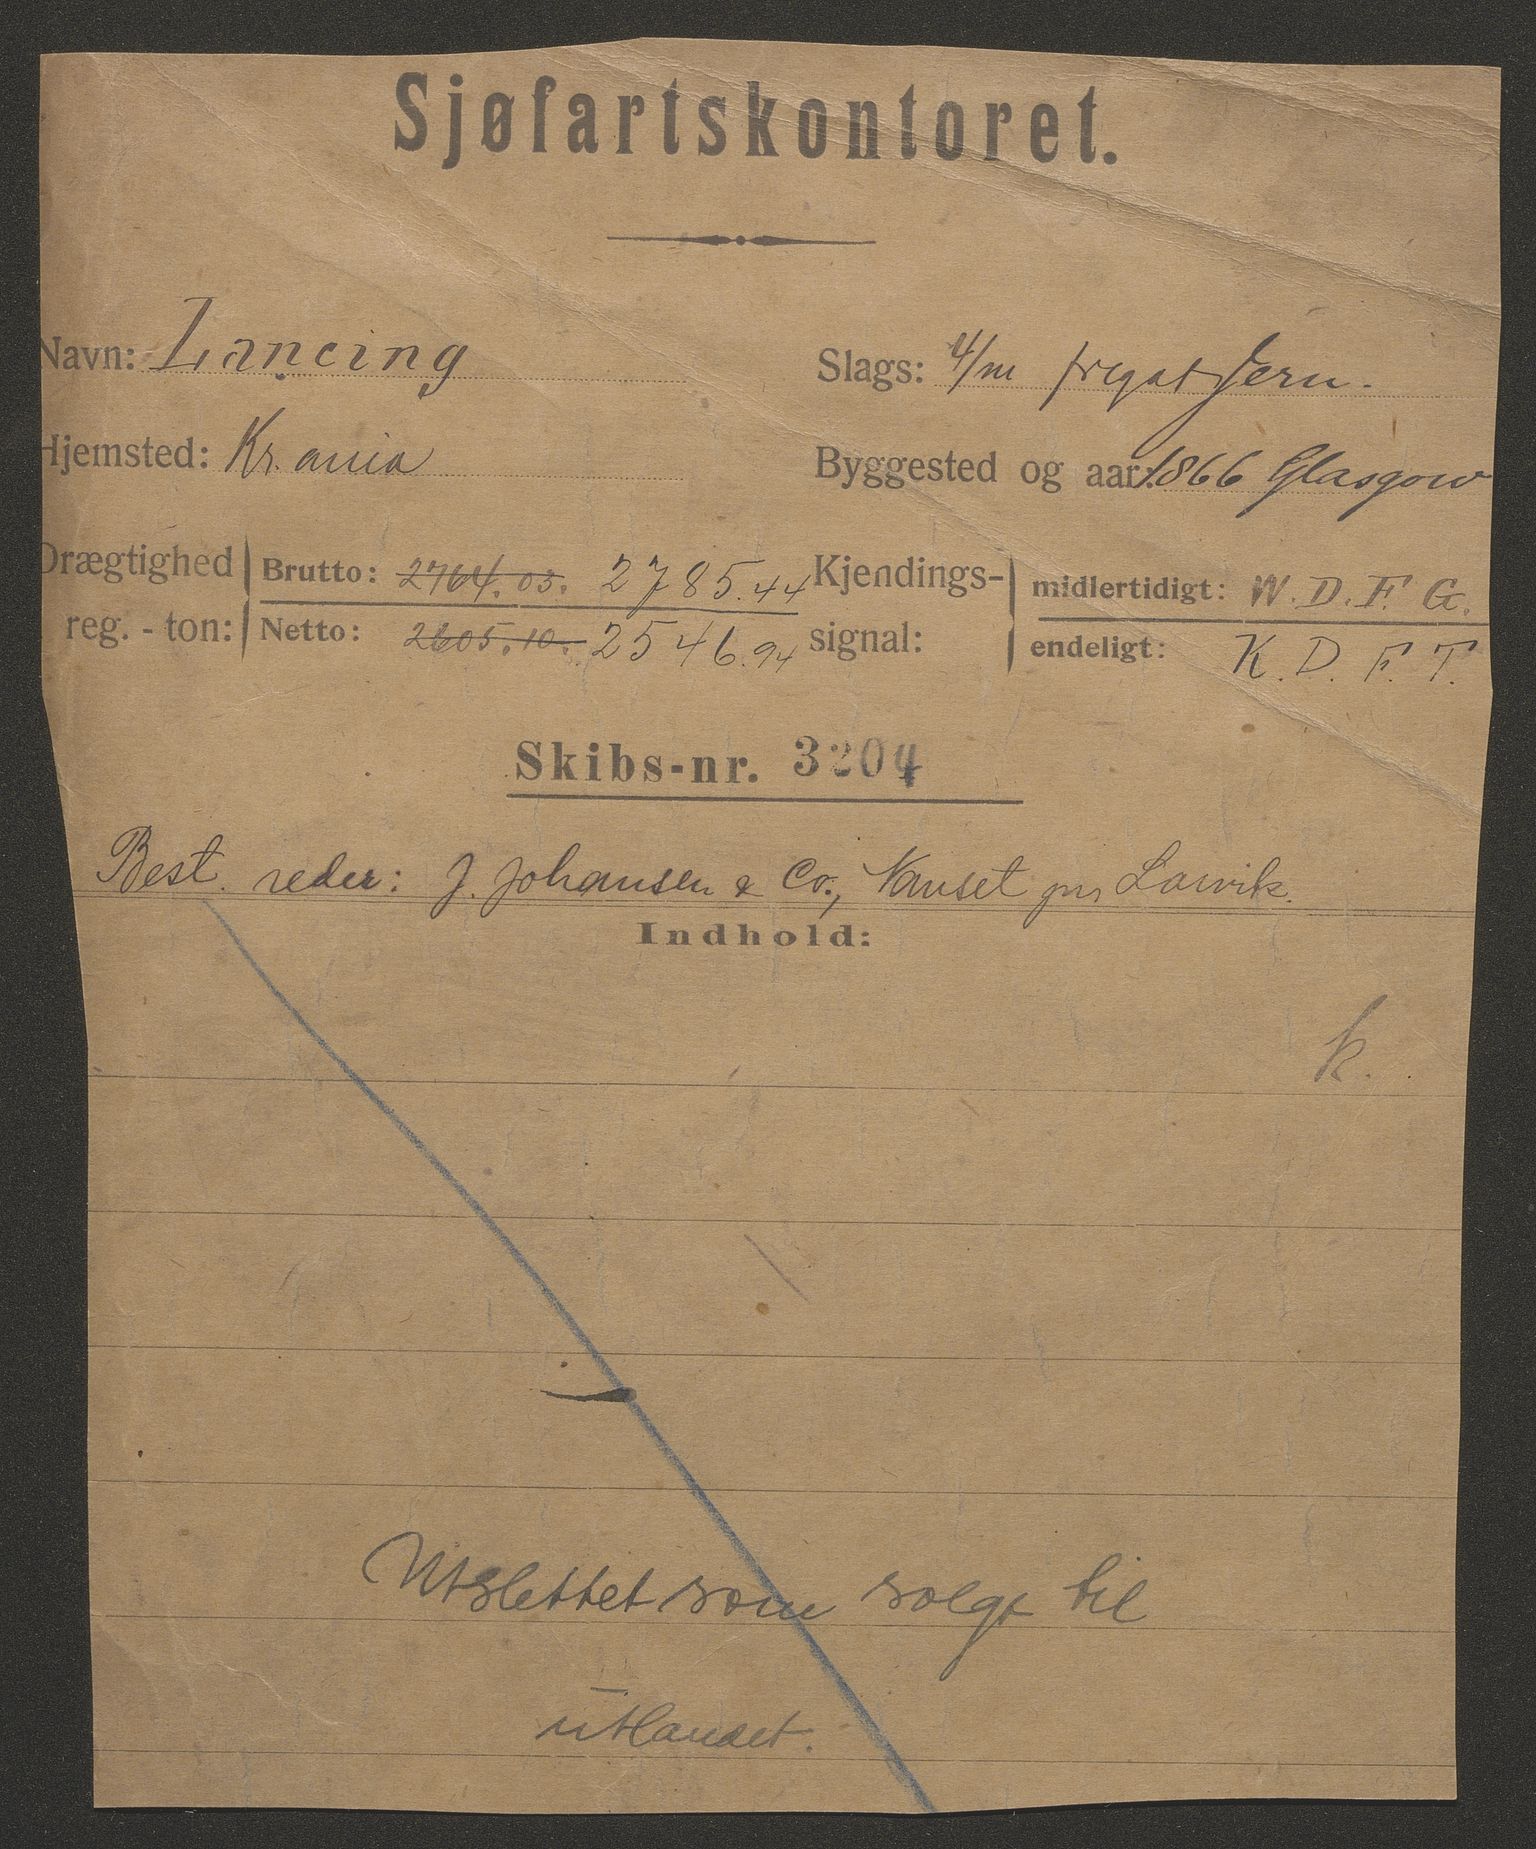 Sjøfartskontoret.
Navn: Lancing
Slags: 4/m fregat Jern.
Hjemsted: Kr.ania
Byggested og aar: 1866 Glasgow
Drægtighed reg. - ton:
Brutto: 2764.03. 2785.44
Netto: 2605.10. 2546.94
Kjendings-signal:
midlertidigt: W. D. F. G.
endeligt: K. D. F. T.
Skibs-nr. 3204
Best. reder: J. Johansen & Co., Nanset pr. Larvik.
Indhold:
k.
Utslettet som solgt til
utlandet.